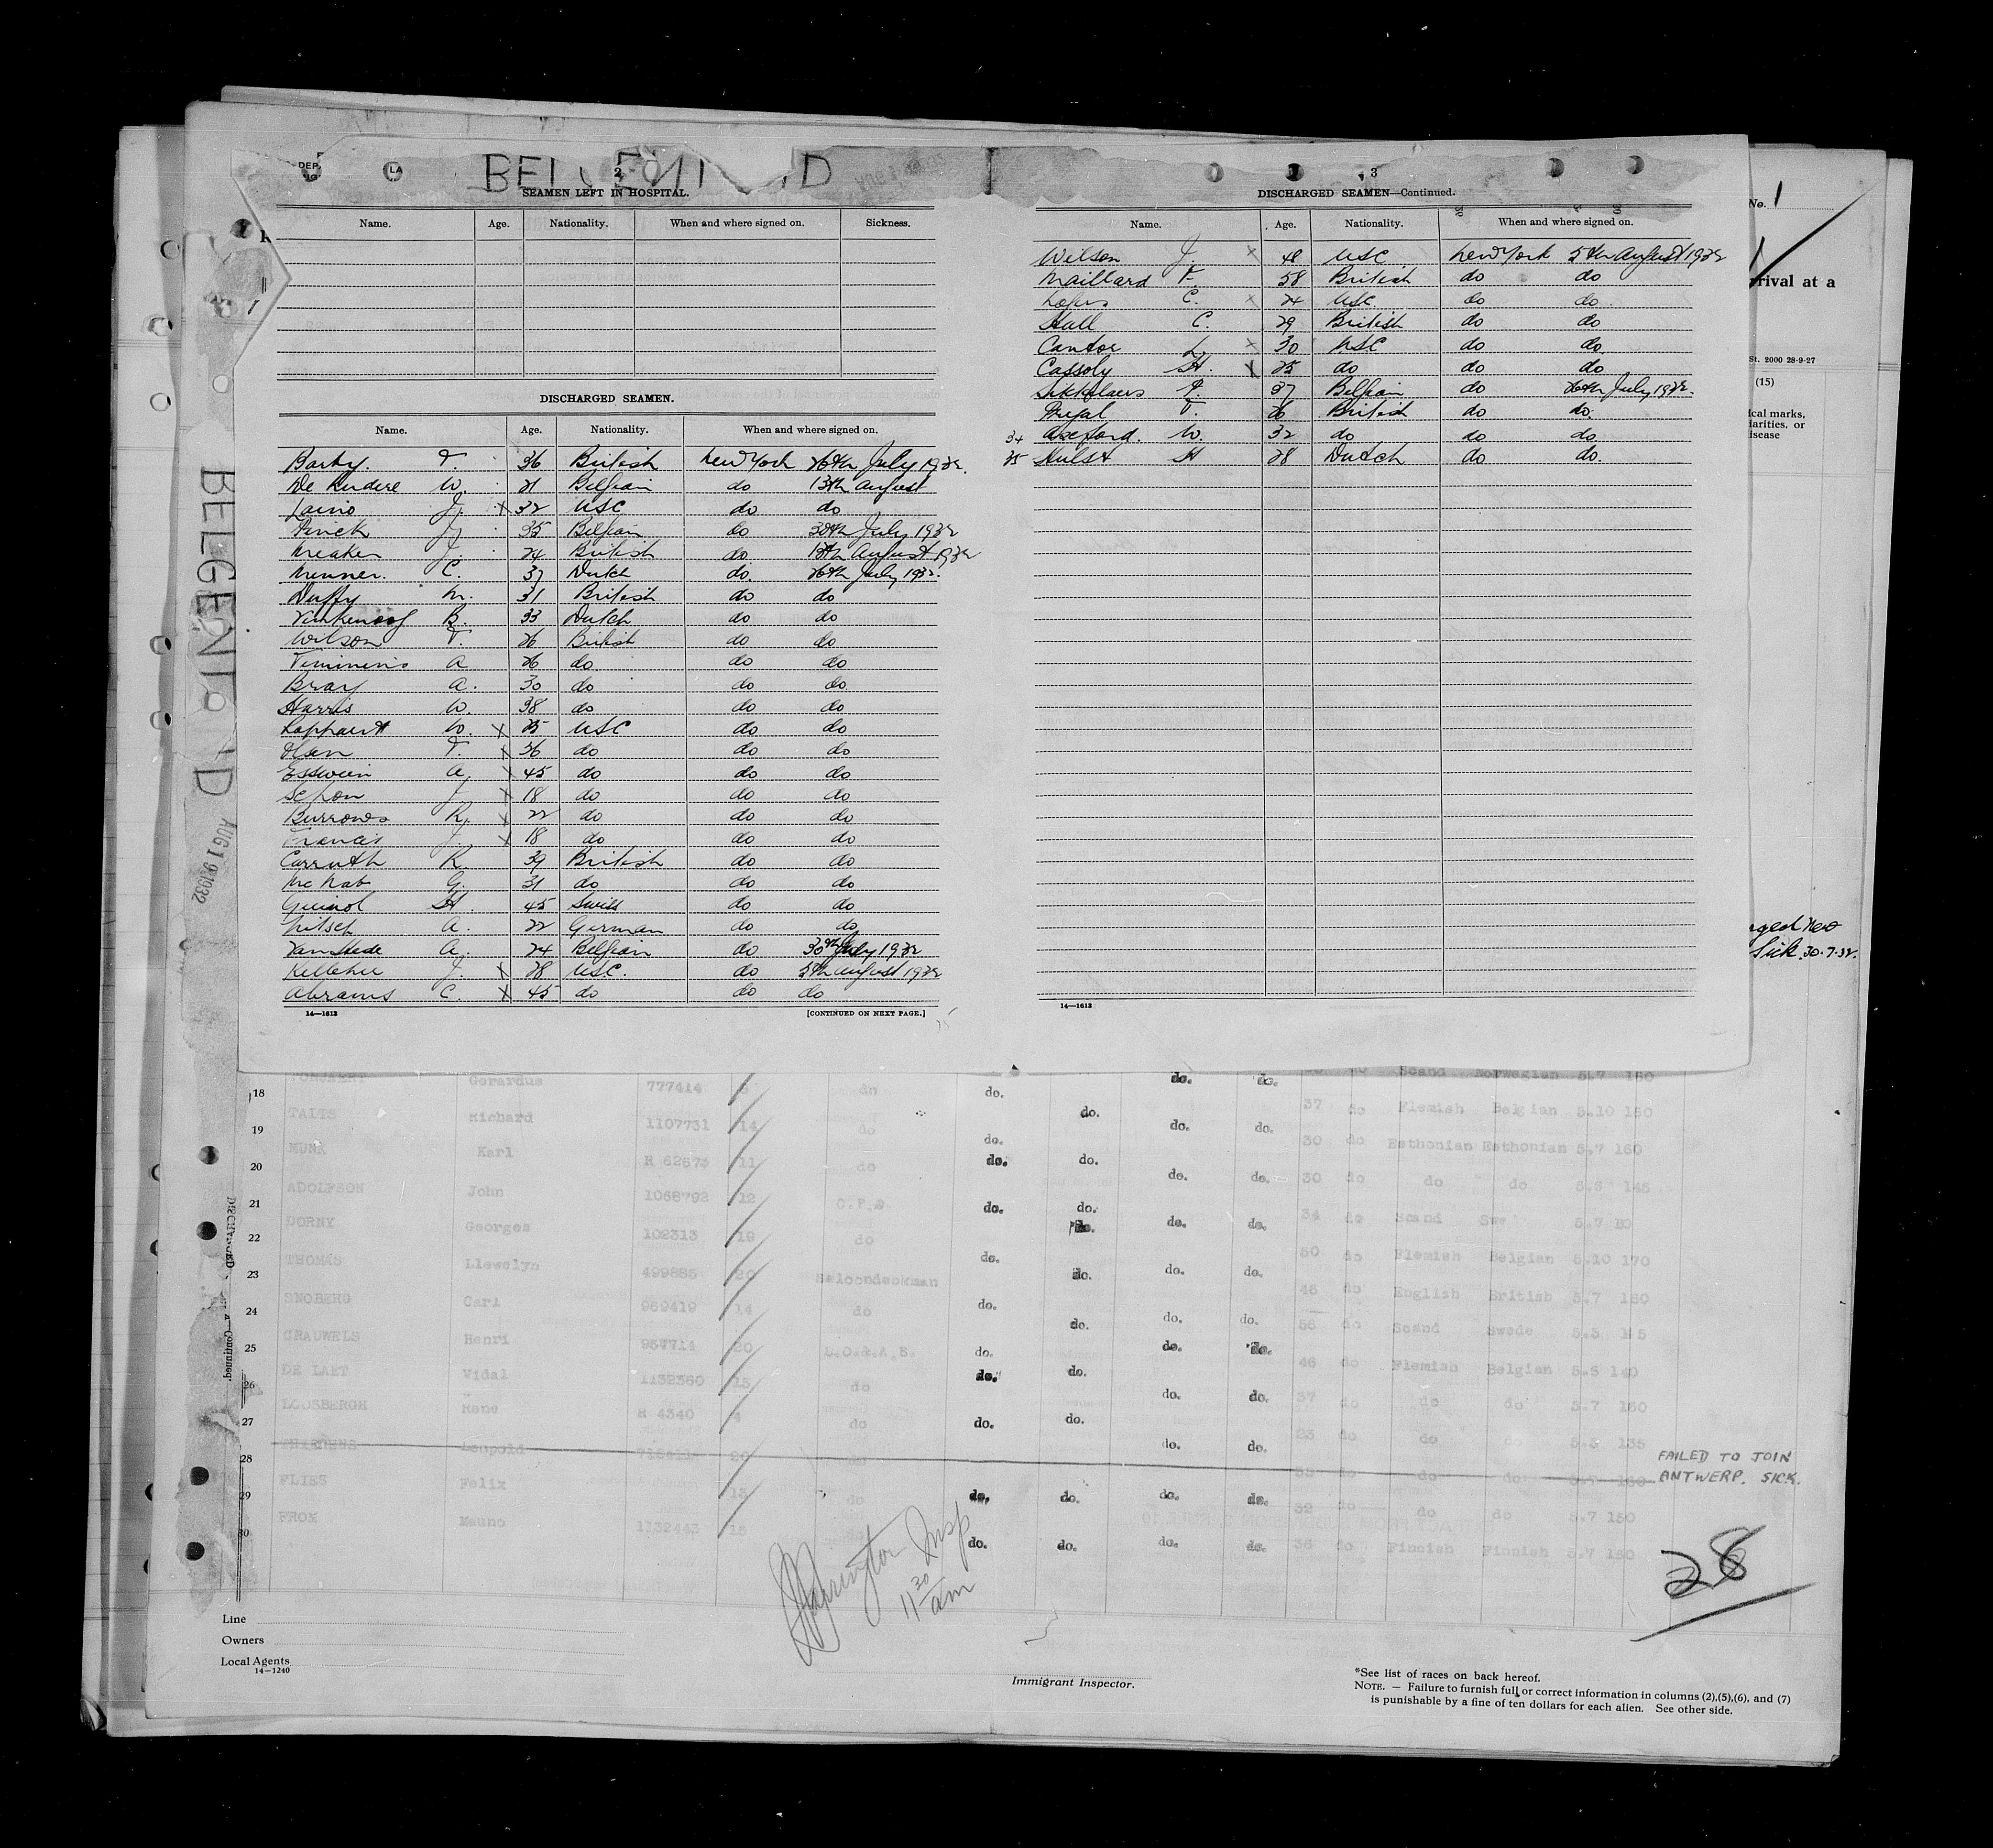 BELGENLAND
2
SEAMEN LEFT IN HOSPITAL.
Name. Age. Nationality. When and where signed on. Sickness.
DISCHARGED SEAMEN.
Name. Age. Nationality. When and where signed on.
Barby. T. 36 British New York 26th July 1932.
De Rudere W. 21 Belgian do 13th August
Laino J. x 32 USC do do
J. 35 Belgian do 30th July 1932
Meaker J. 24 British do 13th August 1932
Menner. C. 37 Dutch do. 26th July 1932.
Duffy M. 31 British do do
Vinkenoog B. 33 Dutch do do
Wilson T. 26 British do do
Timmins A 26 do do do
Bray A. 30 do do do
Harris W. 38 do do do
Laphardt W. x 25 USC do do
Olsen T. x 36 do do do
Esswein A. x 45 do do do
J. x 18 do do do
Burrows R. x 22 do do do
Francis J. x 18 do do do
Carruth R 39 British do do
McNab G. 31 do do do
Guinol H. 45 Swiss do do
Nitsch A. 22 German do do
Van Stede A. 24 Belgian do 30th July 1932
Kelleher J. x 28 USC. do 5th August 1932
Abrams C. x 45 do do do
14—1613 [CONTINUED ON NEXT PAGE.]
3
DISCHARGED SEAMEN—Continued.
Name. Age. Nationality. When and where signed on.
Wilson J. x 48 USC New York 5th August 1932
Maillard F. 58 British do do
C. x 24 USC. do do.
Hall C. 29 British do do
Cantor L. x 30 USC do do.
Cassoly H. x 25 do do do
37 Belgian do 26th July 1932.
T. 26 British do do.
34 Axeford. W. 32 do do do.
35 Hulst H 28 Dutch do do.
14—1613
No. 1
rival at a
St. 2000 28-9-27
(15)
ical marks,
iarities, or
isease
Sick. 30.7.32.
BELGENLAND
AUG 19 1932
18 Gerardus 777414 5 do do. do. do. Scand Norwegian 5.7 160
19 TALTS Richard 1107731 14 do do. do. do. do. 37 do Flemish Belgian 5.10 180
20 MUNK Karl R 62675 11 do do. do. do. do. 30 do Esthonian Esthonian 5.7 160
21 ADOLFSON John 1068792 12 do. do. do. do. 30 do do do 5.8 145
22 DORNY Georges 102313 19 do do. do. do. 34 do Scand
23 THOMAS Llewelyn 499885 20 Saloondeckman do. do. do. do. 50 do Flemish Belgian 5.10 170
24 SNOBERG Carl 969419 14 do do. do. do. do. 48 do English British 5.7 160
25 CRAUWELS Henri 957714 20 do. do. do. do. 55 do Scand Swede
26 DE LAET Vidal 1132360 15 do do. do. do. do. 46 do Flemish Belgian 5.8 140
27 LOOSBERGH Rene R 4340 4 do do. do. do. do. 37 do do do 5.7 160
28 Leopold do 23 do do do 5.5 135
FAILED TO JOIN
ANTWERP. SICK.
29 FLIES Felix 13 do do. do. do. do. 32 do do do 5.7 150
30 FROM Mauno 1132443 15 do. do. do. do. 36 do Finnish Finnish 5.7 150
Insp
11 30 am
28
Line
Owners
Local Agents
14—1240
Immigrant Inspector.
*See list of races on back hereof.
NOTE. — Failure to furnish full or correct information in columns (2),(5),(6), and (7)
is punishable by a fine of ten dollars for each alien. See other side.